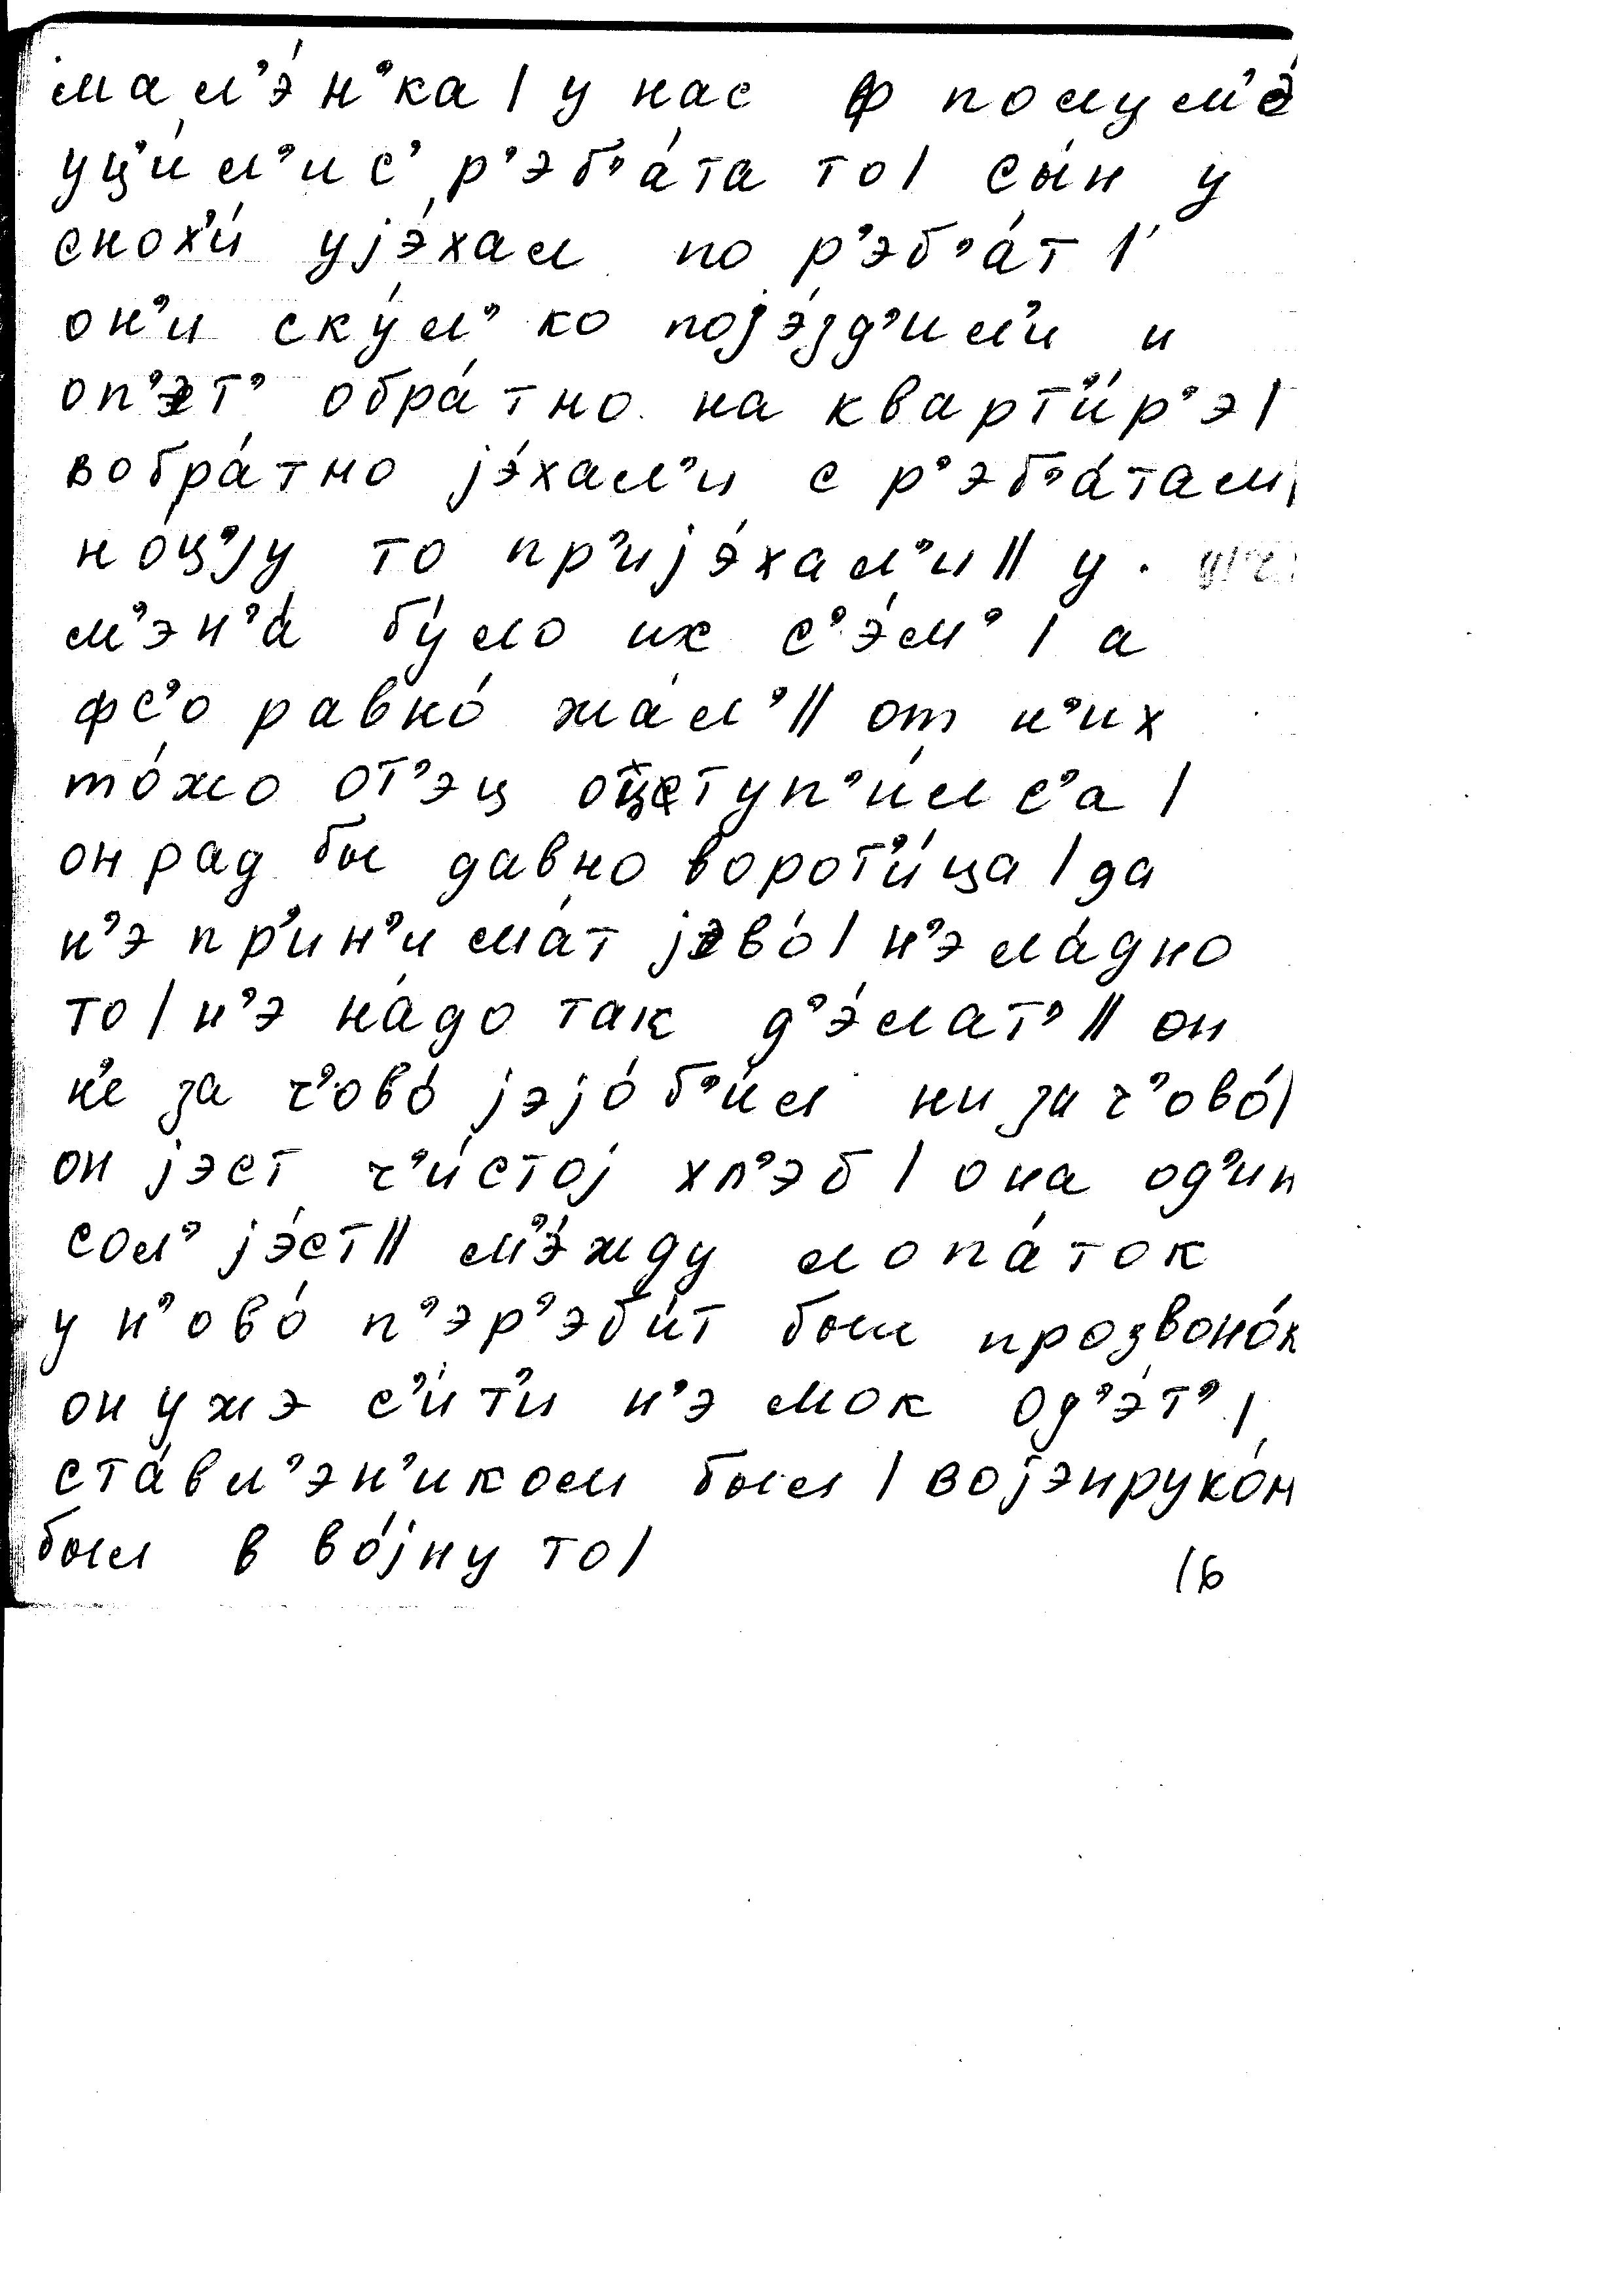 мал’э́н’ка | у нас ф полум’э́
уц’и́л’ис’ р’эб’а́та то | сы́н у
снох’и́ ујэ́хал по р’эб’а́т |
он’и ску́л’ко појэ́зд’ил’и и
оп’эт’ обра́тно на кварт’и́р’э |
вобра́тно јэ́хал’и с р’эб’а́там’
но́ц’ју то пр’ијэ́хал’и || у
м’эн’а́ бу́ло их с’э́м’ | а
фс’о равно́ жа́л’ || от н’их
то́жо от’эц отступ’и́лс’а |
он рад бы давно ворот’и́ца | да
н’э пр’ин’има́т јэво́ | н’э ла́дно
то | н’э на́до так д’э́лат’ || он
н’е за ч’ово́ јэјо́ б’и́л ни за ч’ово́ |
он јэст ч’и́стој хл’эб | она од’ин
сол’ јэ́ст || м’э́жду лопа́ток
у н’ово́ п’эр’эби́т был прозвоно́к
он ужэ с’и́т’и н’э мок од’э́т’ |
ста́вл’эн’иком был | војэнруко́м
был в во́јну то |
16